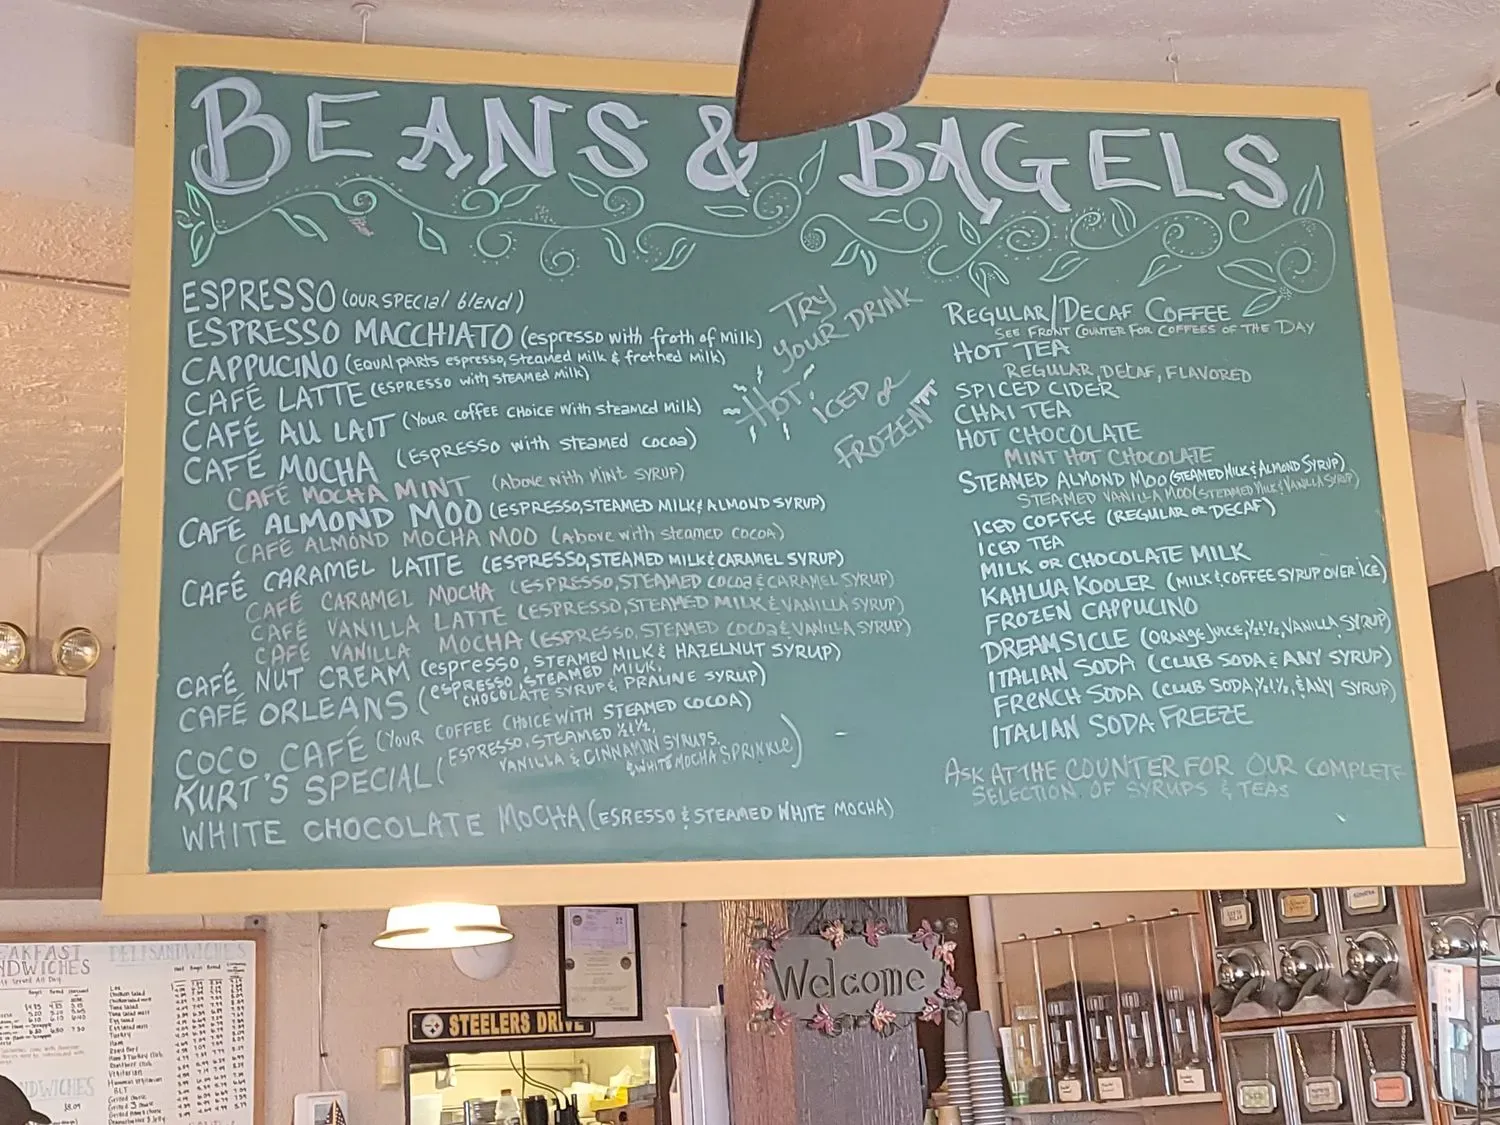 BEANS & BAGELS
ESPRESSO (OUR SPECIAL BLEND)
ESPRESSO MACCHIATO (espresso with froth of Milk)
CAPPUCINO (EQUAL PARTS espresso, Steamed Milk & frothed Milk)
CAFÉ LATTE (ESPRESSO with STEAMED Milk)
CAFÉ AU LAIT (YOUR COFFEE CHOICE WITH STEAMED MILK)
CAFÉ MOCHA (ESPRESSO with STEAMED COCOA)
CAFÉ MOCHA MINT (Above with MINT SYRUP)
CAFÉ ALMOND MOO (ESPRESSO, STEAMED MILK & ALMOND SYRUP)
CAFÉ ALMOND MOCHA MOO (Above with steamed COCOA)
CAFÉ CARAMEL LATTE (ESPRESSO, STEAMED MILK & CARAMEL SYRUP)
CAFÉ CARAMEL MOCHA (ESPRESSO, STEAMED COCOA & CARAMEL SYRUP)
CAFÉ VANILLA LATTE (ESPRESSO, STEAMED MILK & VANILLA SYRUP)
CAFÉ VANILLA MOCHA (ESPRESSO, STEAMED COCOA & VANILLA SYRUP)
CAFÉ NUT CREAM (espresso, STEAMED MILK & HAZELNUT SYRUP)
CAFÉ ORLEANS (ESPRESSO, STEAMED MILK,
CHOCOLATE SYRUP & PRALINE SYRUP)
COCO CAFÉ (YOUR COFFEE CHOICE WITH STEAMED COCOA)
KURT'S SPECIAL (ESPRESSO, STEAMED ½ & ½,
VANILLA & CINNAMIN SYRUPS,
& WHITE MOCHA SPRINKLE)
WHITE CHOCOLATE MOCHA (ESRESSO & STEAMED WHITE MOCHA)
TRY
YOUR DRINK
HOT!
ICED or
FROZEN
REGULAR/DECAF COFFEE
SEE FRONT COUNTER FOR COFFEES OF THE DAY
HOT TEA
REGULAR, DECAF, FLAVORED
SPICED CIDER
CHAI TEA
HOT CHOCOLATE
MINT HOT CHOCOLATE
STEAMED ALMOND MOO (STEAMED MILK & ALMOND SYRUP)
STEAMED VANILLA MOO (STEAMED MILK & VANILLA SYRUP)
ICED COFFEE (REGULAR OR DECAF)
ICED TEA
MILK OR CHOCOLATE MILK
KAHLUA KOOLER (MILK & COFFEE SYRUP OVER ICE)
FROZEN CAPPUCINO
DREAMSICLE (ORANGE JUICE, ½ & ½, VANILLA SYRUP)
ITALIAN SODA (CLUB SODA & ANY SYRUP)
FRENCH SODA (CLUB SODA, ½ & ½, & ANY SYRUP)
ITALIAN SODA FREEZE
ASK AT THE COUNTER FOR OUR COMPLETE
SELECTION OF SYRUPS & TEAS
Welcome
STEELERS DRIVE
DELI SANDWICHES
Egg Salad
Turkey
Ham
Roast Beef
BLT
$8.09